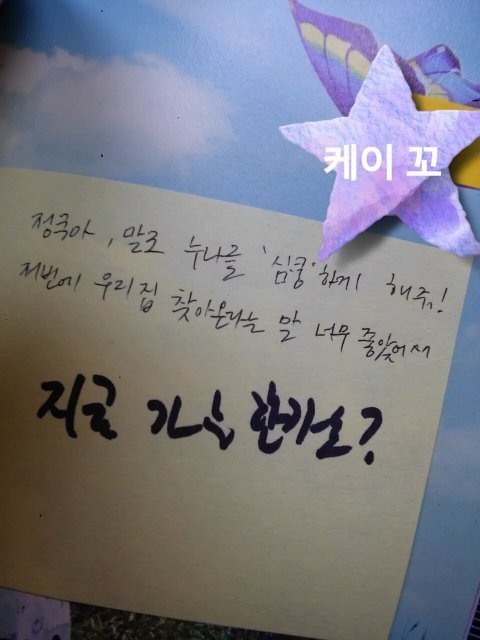 케이 꼬
정국아, 말로 누나를 '심쿵'하게 해줘!
저번에 우리집 찾아온다는 말 너무 좋았어서
지금 가능한가요?